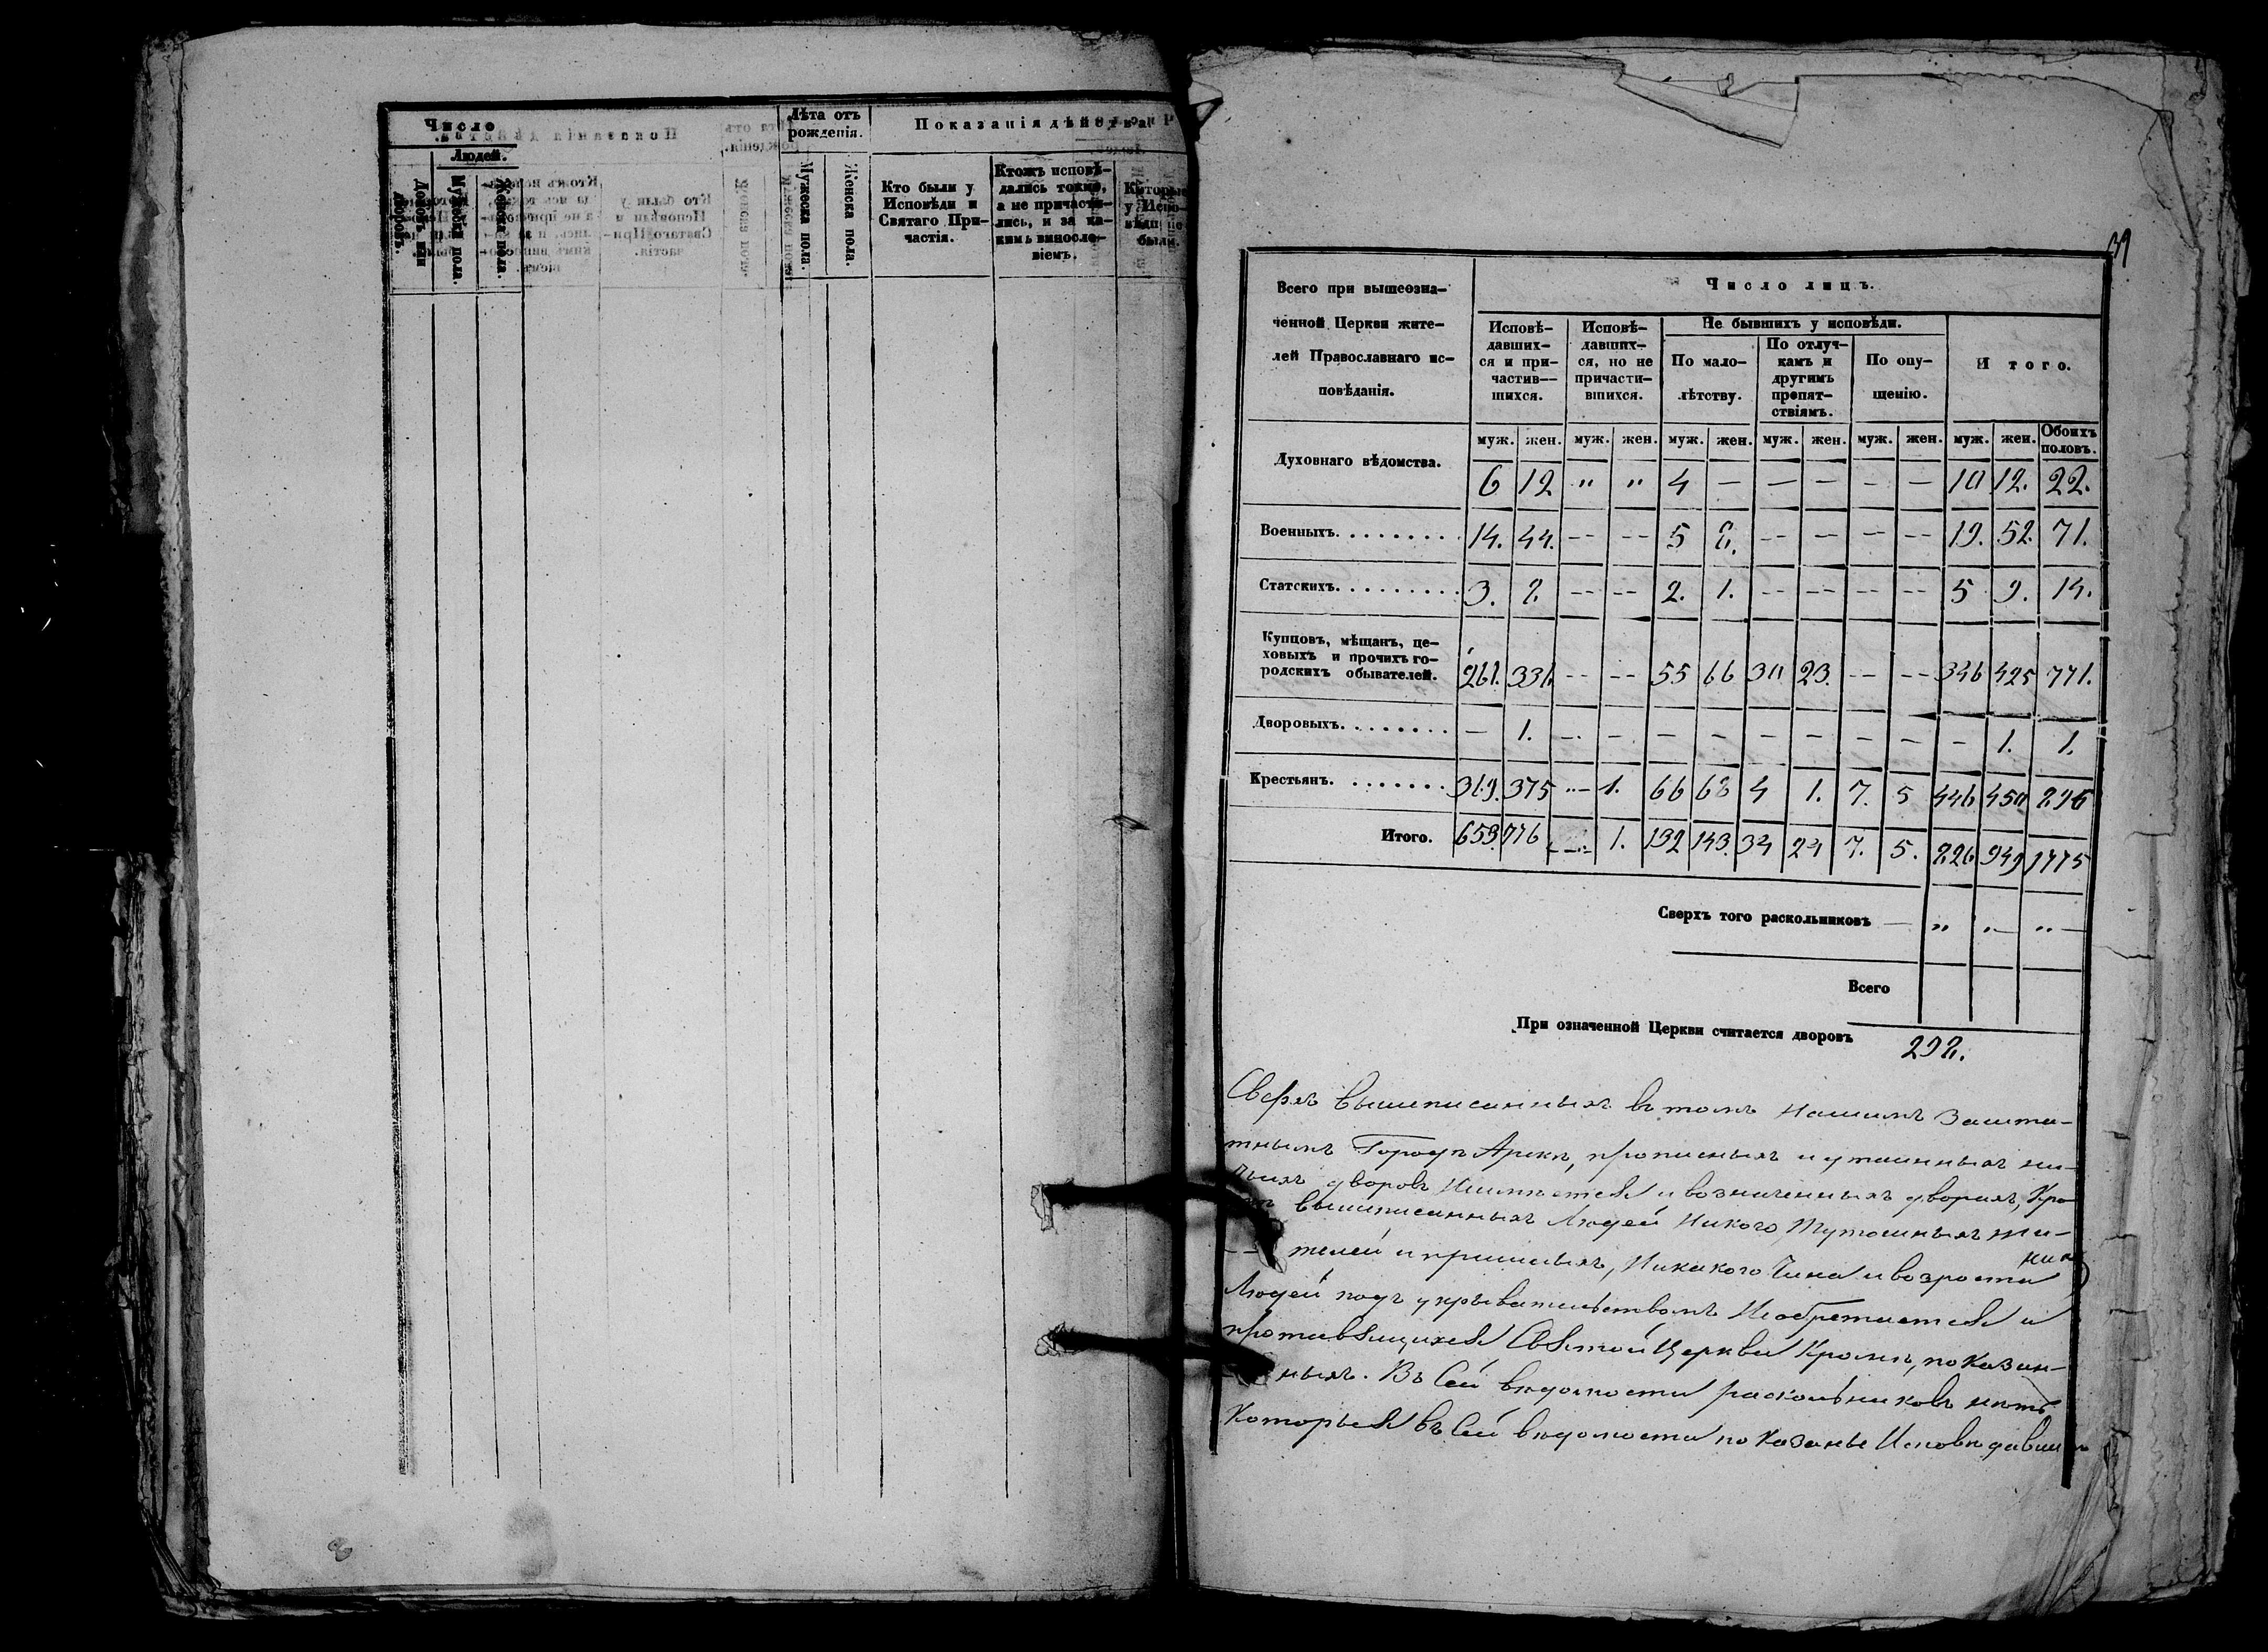 Число
Людей.
Домовъ или дворовъ.
Мужеска пола.
Женска пола.
Лѣта отъ рожденія.
Мужеска пола.
Женска пола.
Показанія дѣйства
Кто были у Исповѣди и Святаго При-частія.
Ктожъ исповѣ-дались токмо, а не причасти-лись, и за ка-кимъ винословіемъ.
Которые у Испо-вѣди не были.
39
Всего при вышеозна-
ченной Церкви жите-
лей Православнаго ис-
повѣданія.
Число лицъ.
Исповѣ-давших-ся и при-частив-шихся.
Исповѣ-давших-ся, но не причасти-вшихся.
Не бывшихъ у исповѣди.
По мало-лѣтству.
По отлуч-камъ и другимъ препят-ствіямъ.
По опу-щенію.
И того.
муж. жен. муж. жен. муж. жен. муж. жен. муж. жен. муж. жен. Обоихъ половъ.
Духовнаго вѣдомства. 6 12 " " 4 — — — — — 10 12. 22.
Военныхъ. 14. 44. -- -- 5 8. -- — — -- 19. 52. 71.
Статскихъ. 3. 8. -- -- 2. 1. -- -- -- -- 5 9. 14.
Купцовъ, мѣщанъ, це-
ховыхъ и прочихъ го-
родскихъ обывателей. 261. 336. -- -- 55 66 30 23. -- -- 346 425 771.
Дворовыхъ. — 1. — — — — — — — — — 1. 1.
Крестьянъ. 369. 375 — 1. 66 68 4 1. 7. 5 446 450 896
Итого. 653. 776 — 1. 132 143. 34 24 7. 5. 826 949 1775
Сверхъ того раскольниковъ — " "— "—
Всего
При означенной Церкви считается дворовъ 298.
Сверхъ вышеписанныхъ въ томъ нашемъ Зашта-
тномъ Городѣ Арскѣ, прописныхъ и утаенныхъ ни-
чьихъ дворовъ неимѣется и возначенныхъ дворахъ, Кро-
мѣ вышеписанныхъ Людей никого тутошныхъ жи-
телей и пришлыхъ, никакого Чина и возроста
Людей подъ укрывательствомъ Необретается и
противящихся Святой Церкви Кромѣ, показан-
ныхъ. Въ Сей вѣдомости раскольниковъ нѣтъ
Которыя въ Сей вѣдомости показаны Исповѣдавши